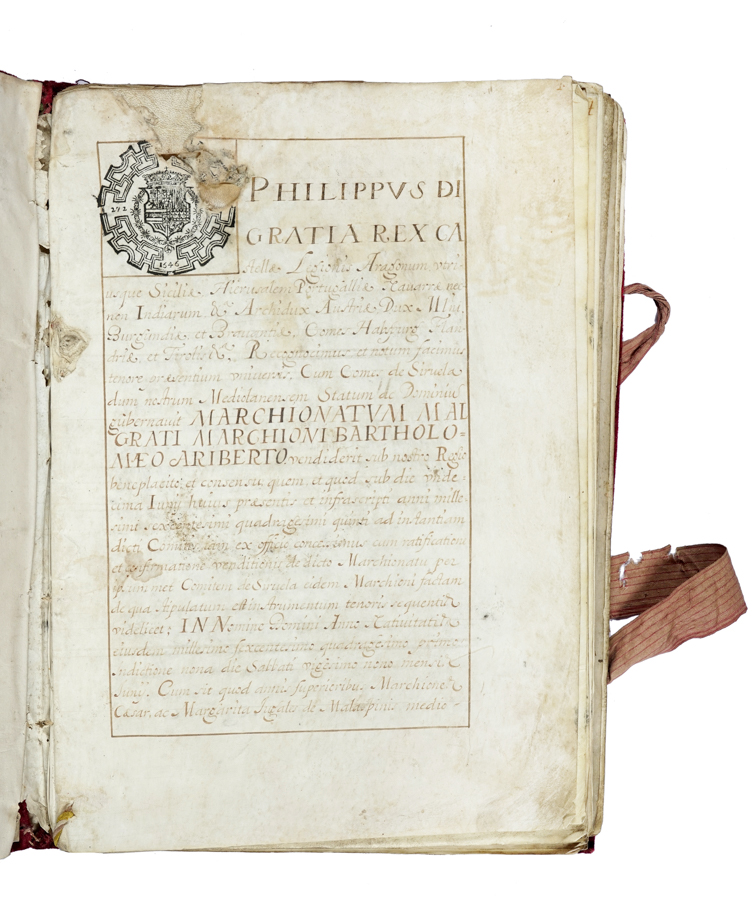 272
1646
PHILIPPVS DI
GRATIA REX CA
stellæ Legionis Aragonum utri-
usque Siciliæ Hierusalem Portugalliæ Nauarræ nec
non Indiarum &c Archidux Austriæ Dux Mlni,
Burgundiæ, et Brabantiæ, Comes Habspurg Flan
driæ, et Tirolis &c. Recognoscimus, et notum facimus
tenore præsentium vniuersis, Cum Comes de Siruela
dum nostrum Mediolanensem Statum de Dominiis
gubernauit MARCHIONATVM MAL
GRATI MARCHIONI BARTHOLO=
MÆO ARIBERTO, vendiderit sub nostro Regio
beneplacito, et consensu, quem, et quod sub die vnde=
cima Iunij huius præsentis et infrascripti anni mille
simi sexcentesimi quadragesimi quinti ad instantiam
dicti Comitis, tam ex officio concessimus cum ratificatione
et confirmatione venditionis de dicto Marchionatu per
ipsum met Comitem de Siruela eidem Marchioni factam
de qua stipulatum est instrumentum tenoris sequentis
videlicet; IN Nomine Domini Anno Natiuitatis
eiusdem millesimo sexcentesimo quadragesimo primo
indictione nona die Sabbati vigesimo nono mensis
Iunij. Cum sit quod annis superioribus Marchiones
Cæsar, ac Margarita Iugales de Malaspinis, medie-